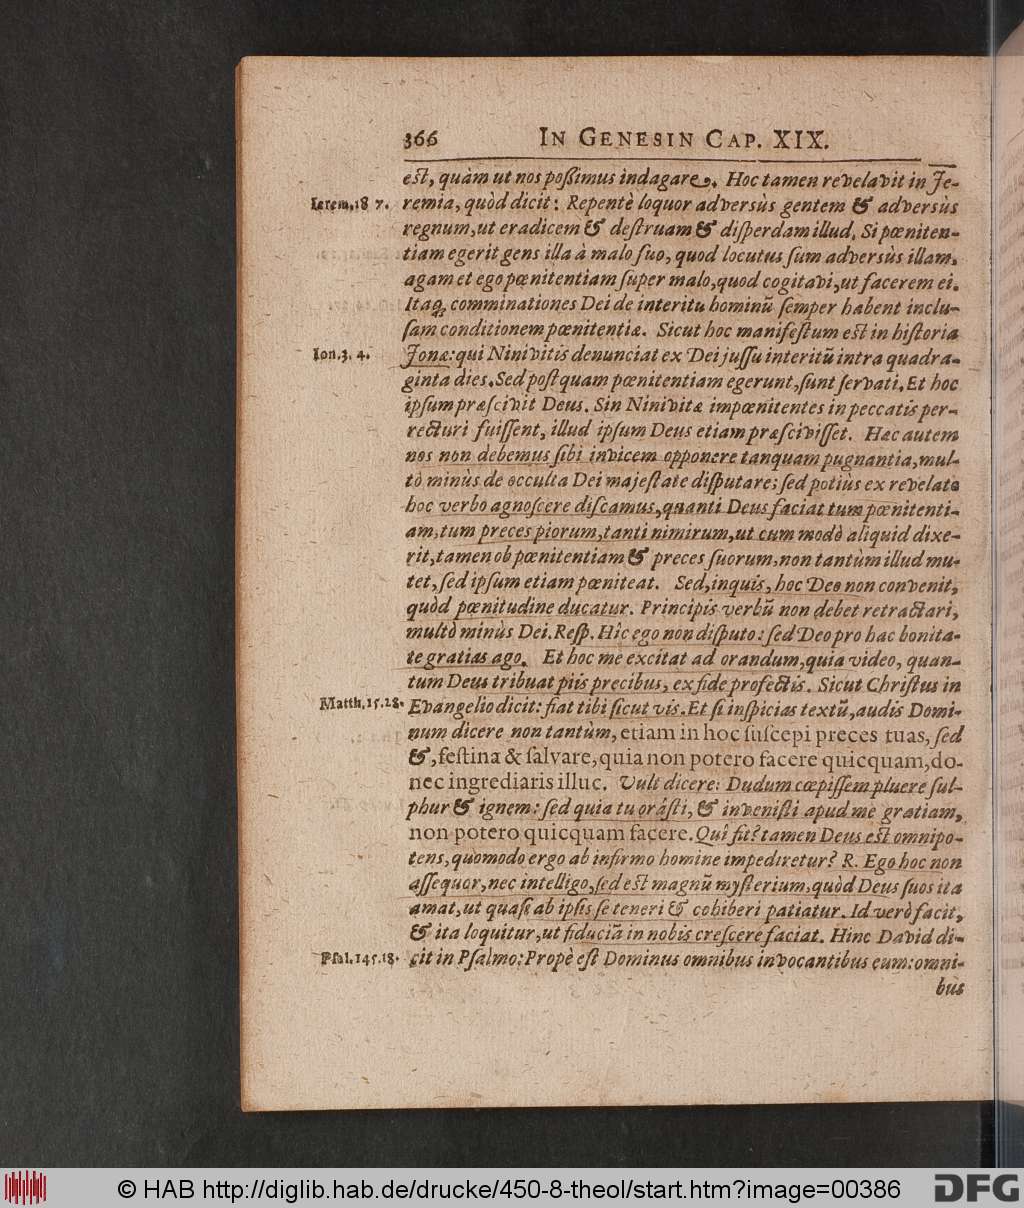 366 IN GENESIN CAP. XIX.
est, quàm ut nos poßimus indagare. Hoc tamen revelavit in Je-
Ierem. 18 7. remia, quòd dicit: Repentè loquor adversùs gentem & adversùs
regnum, ut eradicem & destruam & disperdam illud. Si pœniten-
tiam egerit gens illa à malo suo, quod locutus sum adversùs illam,
agam et ego pœnitentiam super malo, quod cogitavi, ut facerem ei.
Itaq; comminationes Dei de interitu hominũ semper habent inclu-
sam conditionem pœnitentiæ. Sicut hoc manifestum est in historia
Ion. 3. 4. Jonæ: qui Ninivitis denunciat ex Dei jussu interitũ intra quadra-
ginta dies. Sed postquam pœnitentiam egerunt, sunt servati. Et hoc
ipsum præscivit Deus. Sin Ninivitæ impœnitentes in peccatis per-
recturi fuissent, illud ipsum Deus etiam præscivisset. Hæc autem
nos non debemus sibi invicem opponere tanquam pugnantia, mul-
tò minùs de occulta Dei majestate disputare; sed potiùs ex revelato
hoc verbo agnoscere discamus, quanti Deus faciat tum pœnitenti-
am, tum preces piorum, tanti nimirum, ut cum modò aliquid dixe-
rit, tamen ob pœnitentiam & preces suorum, non tantùm illud mu-
tet, sed ipsum etiam pœniteat. Sed, inquis, hoc Deo non convenit,
quòd pœnitudine ducatur. Principis verbũ non debet retractari,
multò minùs Dei. Resp. Hîc ego non disputo: sed Deo pro hac bonita-
te gratias ago. Et hoc me excitat ad orandum, quia video, quan-
tum Deus tribuat piis precibus, ex fide profectis. Sicut Christus in
Matth. 15. 28. Evangelio dicit: fiat tibi sicut vis. Et si inspicias textũ, audis Domi-
num dicere non tantùm, etiam in hoc suscepi preces tuas, sed
&, festina & salvare, quia non potero facere quicquam, do-
nec ingrediaris illuc. Vult dicere: Dudum cœpissem pluere sul-
phur & ignem: sed quia tu orásti, & invenisti apud me gratiam,
non potero quicquam facere. Quî fit? tamen Deus est omnipo-
tens, quomodo ergo ab infirmo homine impediretur? R. Ego hoc non
assequor, nec intelligo, sed est magnũ mysterium, quòd Deus suos ita
amat, ut quasi ab ipsis se teneri & cohiberi patiatur. Id verò facit,
& ita loquitur, ut fiduciã in nobis crescere faciat. Hinc David di-
Psal. 145. 18. cit in Psalmo: Propè est Dominus omnibus invocantibus eum: omni-
bus
© HAB http://diglib.hab.de/drucke/450-8-theol/start.htm?image=00386
DFG